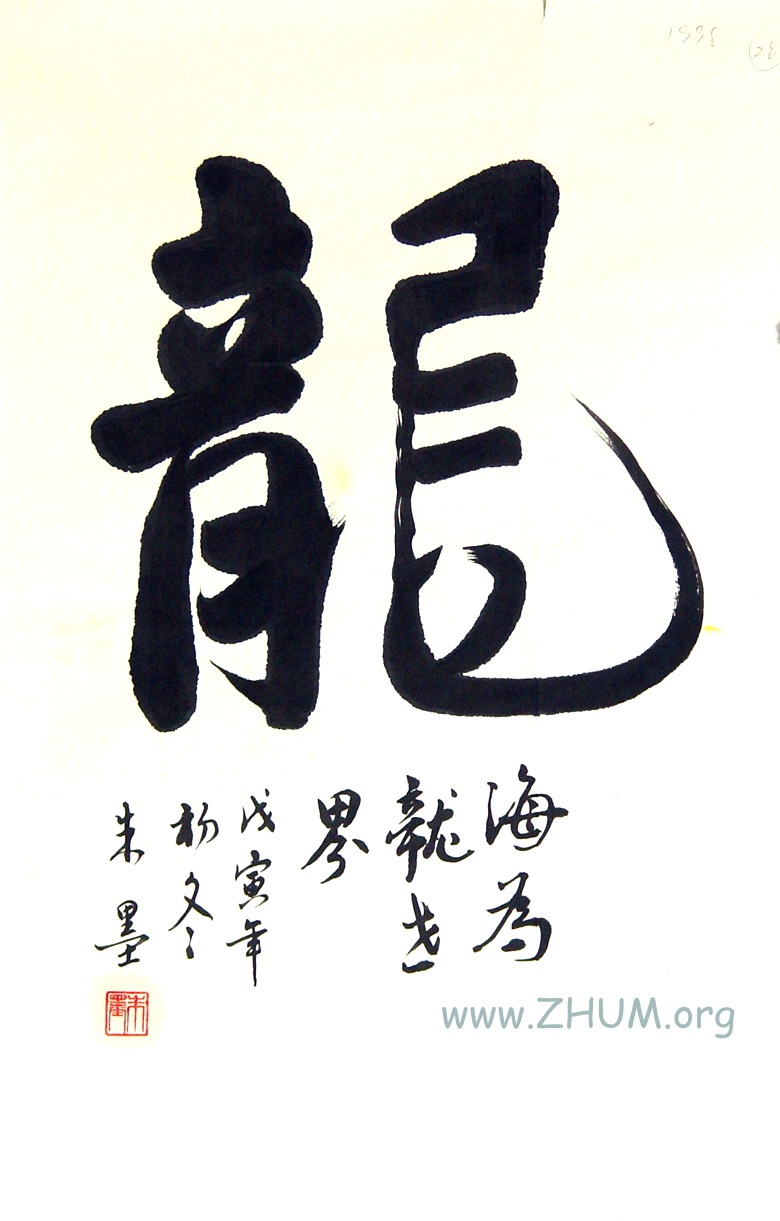 1998
龍
海為
龍世
界
戊寅年
初冬
朱墨
朱墨
www.ZHUM.org